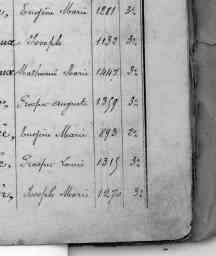 Eugène Marie 1281 3e
Joseph 1132 3e
Mathurin Marie 1447 3e
Prosper Auguste 1359 3e
Eugène Marie 893 2e
Prosper Louis 1315 3e
Joseph Marie 1270 3e